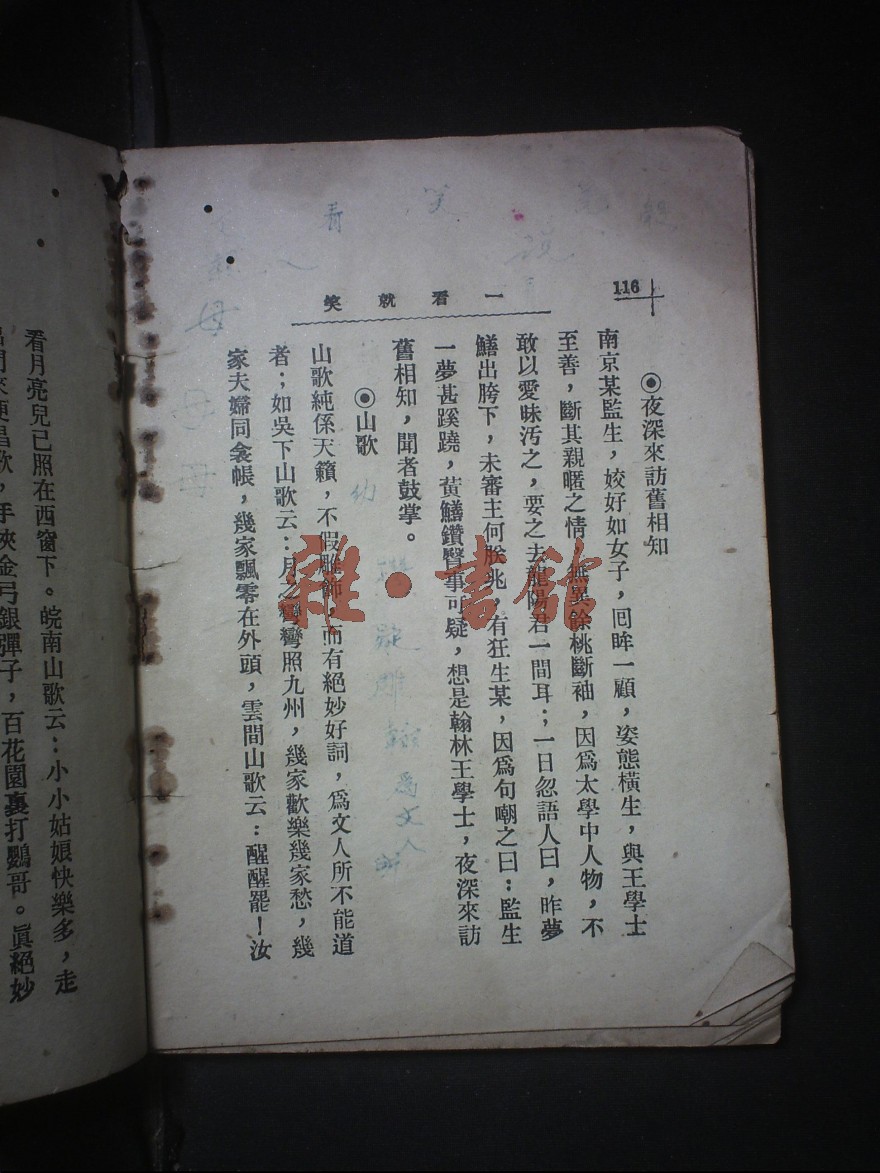 116
一看就笑
◉夜深來訪舊相知
南京某監生，姣好如女子，囘眸一顧，姿態橫生，與王學士
至善，斷其親暱之情，無異餘桃斷袖，因爲太學中人物，不
敢以愛昧汚之，要之去龍陽君一間耳；一日忽語人曰，昨夢
鱔出胯下，未審主何朕兆，有狂生某，因爲句嘲之曰：監生
一夢甚蹊蹺，黃鱔鑽臀事可疑，想是翰林王學士，夜深來訪
舊相知，聞者鼓掌。
◉山歌
山歌純係天籟，不假雕飾，而有絕妙好詞，爲文人所不能道
者；如吳下山歌云：月之彎彎照九州，幾家歡樂幾家愁，幾
家夫婦同衾帳，幾家飄零在外頭，雲間山歌云：醒醒罷！汝
看月亮兒已照在西窗下。皖南山歌云：小小姑娘快樂多，走
出門來便唱歌，手挾金弓銀彈子，百花園裏打鸚哥。眞絕妙
雜·書館
看
笑
說
母
母
母
幼
雕
爲文人